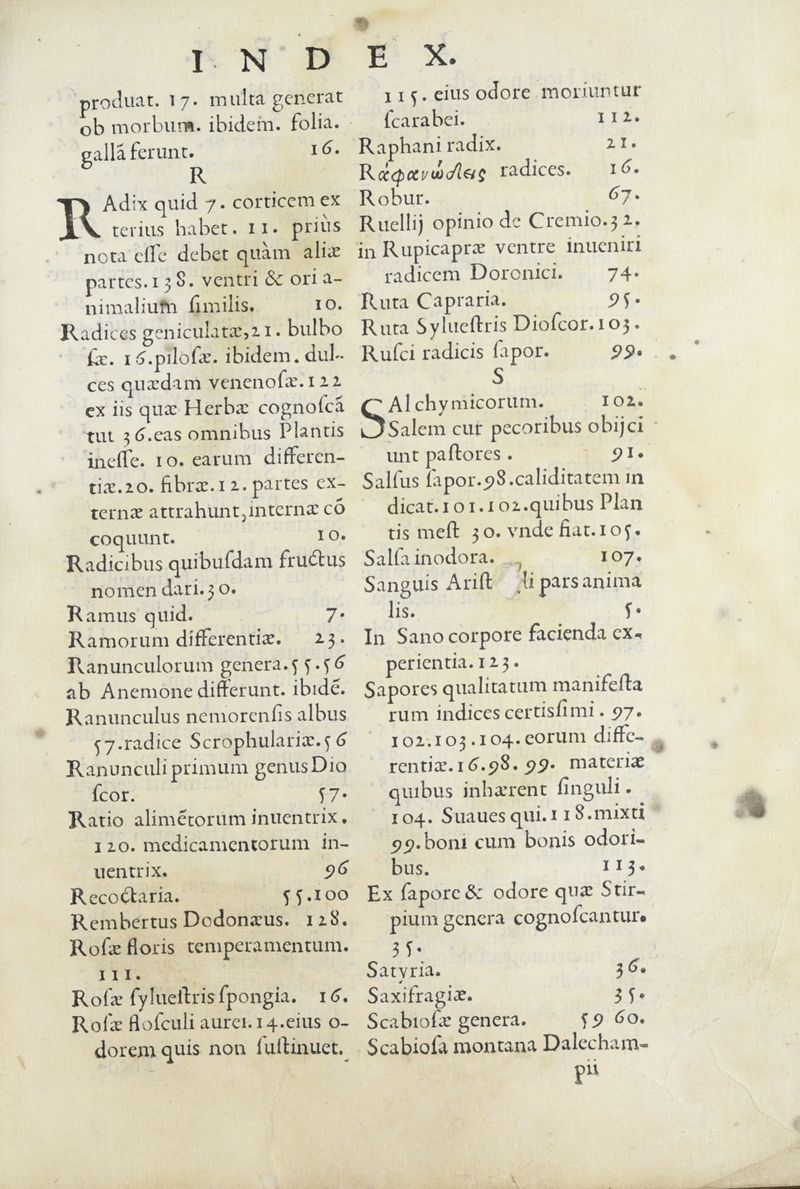 INDEX.
produat. 17. multa generat
ob morbum. ibidem. folia.
gallã ferunt. 16.
R
RAdix quid 7. corticem ex
terius habet. 11. priùs
nota eſſe debet quàm aliæ
partes. 138. ventri & ori a-
nimalium ſimilis. 10.
Radices geniculatæ, 21. bulbo
ſæ. 16. piloſæ. ibidem. dul-
ces quædam venenoſæ. 122
ex iis quæ Herbæ cognoſcã
tut 36. eas omnibus Plantis
ineſſe. 10. earum differen-
tiæ. 20. fibræ. 12. partes ex-
ternæ attrahunt, internæ cõ
coquunt. 10.
Radicibus quibuſdam fructus
nomen dari. 30.
Ramus quid. 7.
Ramorum differentiæ. 23.
Ranunculorum genera. 55. 56
ab Anemone differunt. ibidẽ.
Ranunculus nemorenſis albus
57. radice Scrophulariæ. 56
Ranunculi primum genus Dio
ſcor. 57.
Ratio alimẽtorum inuentrix.
120. medicamentorum in-
uentrix. 96
Recoctaria. 55. 100
Rembertus Dodonæus. 128.
Roſæ floris temperamentum.
111.
Roſæ ſylueſtris ſpongia. 16.
Roſæ floſculi aurei. 14. eius o-
dorem quis non ſuſtinuet.
115. eius odore moriuntur
ſcarabei. 112.
Raphani radix. 21.
Ῥαφανώδεις radices. 16.
Robur. 67.
Ruellij opinio de Cremio. 32.
in Rupicapræ ventre inueniri
radicem Doronici. 74.
Ruta Capraria. 95.
Ruta Sylueſtris Dioſcor. 103.
Ruſci radicis ſapor. 99.
S
SAl chymicorum. 102.
Salem cur pecoribus obijci
unt paſtores. 91.
Salſus ſapor. 98. caliditatem in
dicat. 101. 102. quibus Plan
tis meſt 30. vnde fiat. 105.
Salſa inodora. 107.
Sanguis Ariſt li pars anima
lis. 5.
In Sano corpore facienda ex-
perientia. 123.
Sapores qualitatum manifeſta
rum indices certisſimi. 97.
102. 103. 104. eorum diffe-
rentiæ. 16. 98. 99. materiæ
quibus inhærent ſinguli.
104. Suaues qui. 118. mixti
99. boni cum bonis odori-
bus. 113.
Ex ſapore & odore quæ Stir-
pium genera cognoſcantur.
35.
Satyria. 36.
Saxifragiæ. 35.
Scabioſæ genera. 59 60.
Scabioſa montana Dalecham-
pii